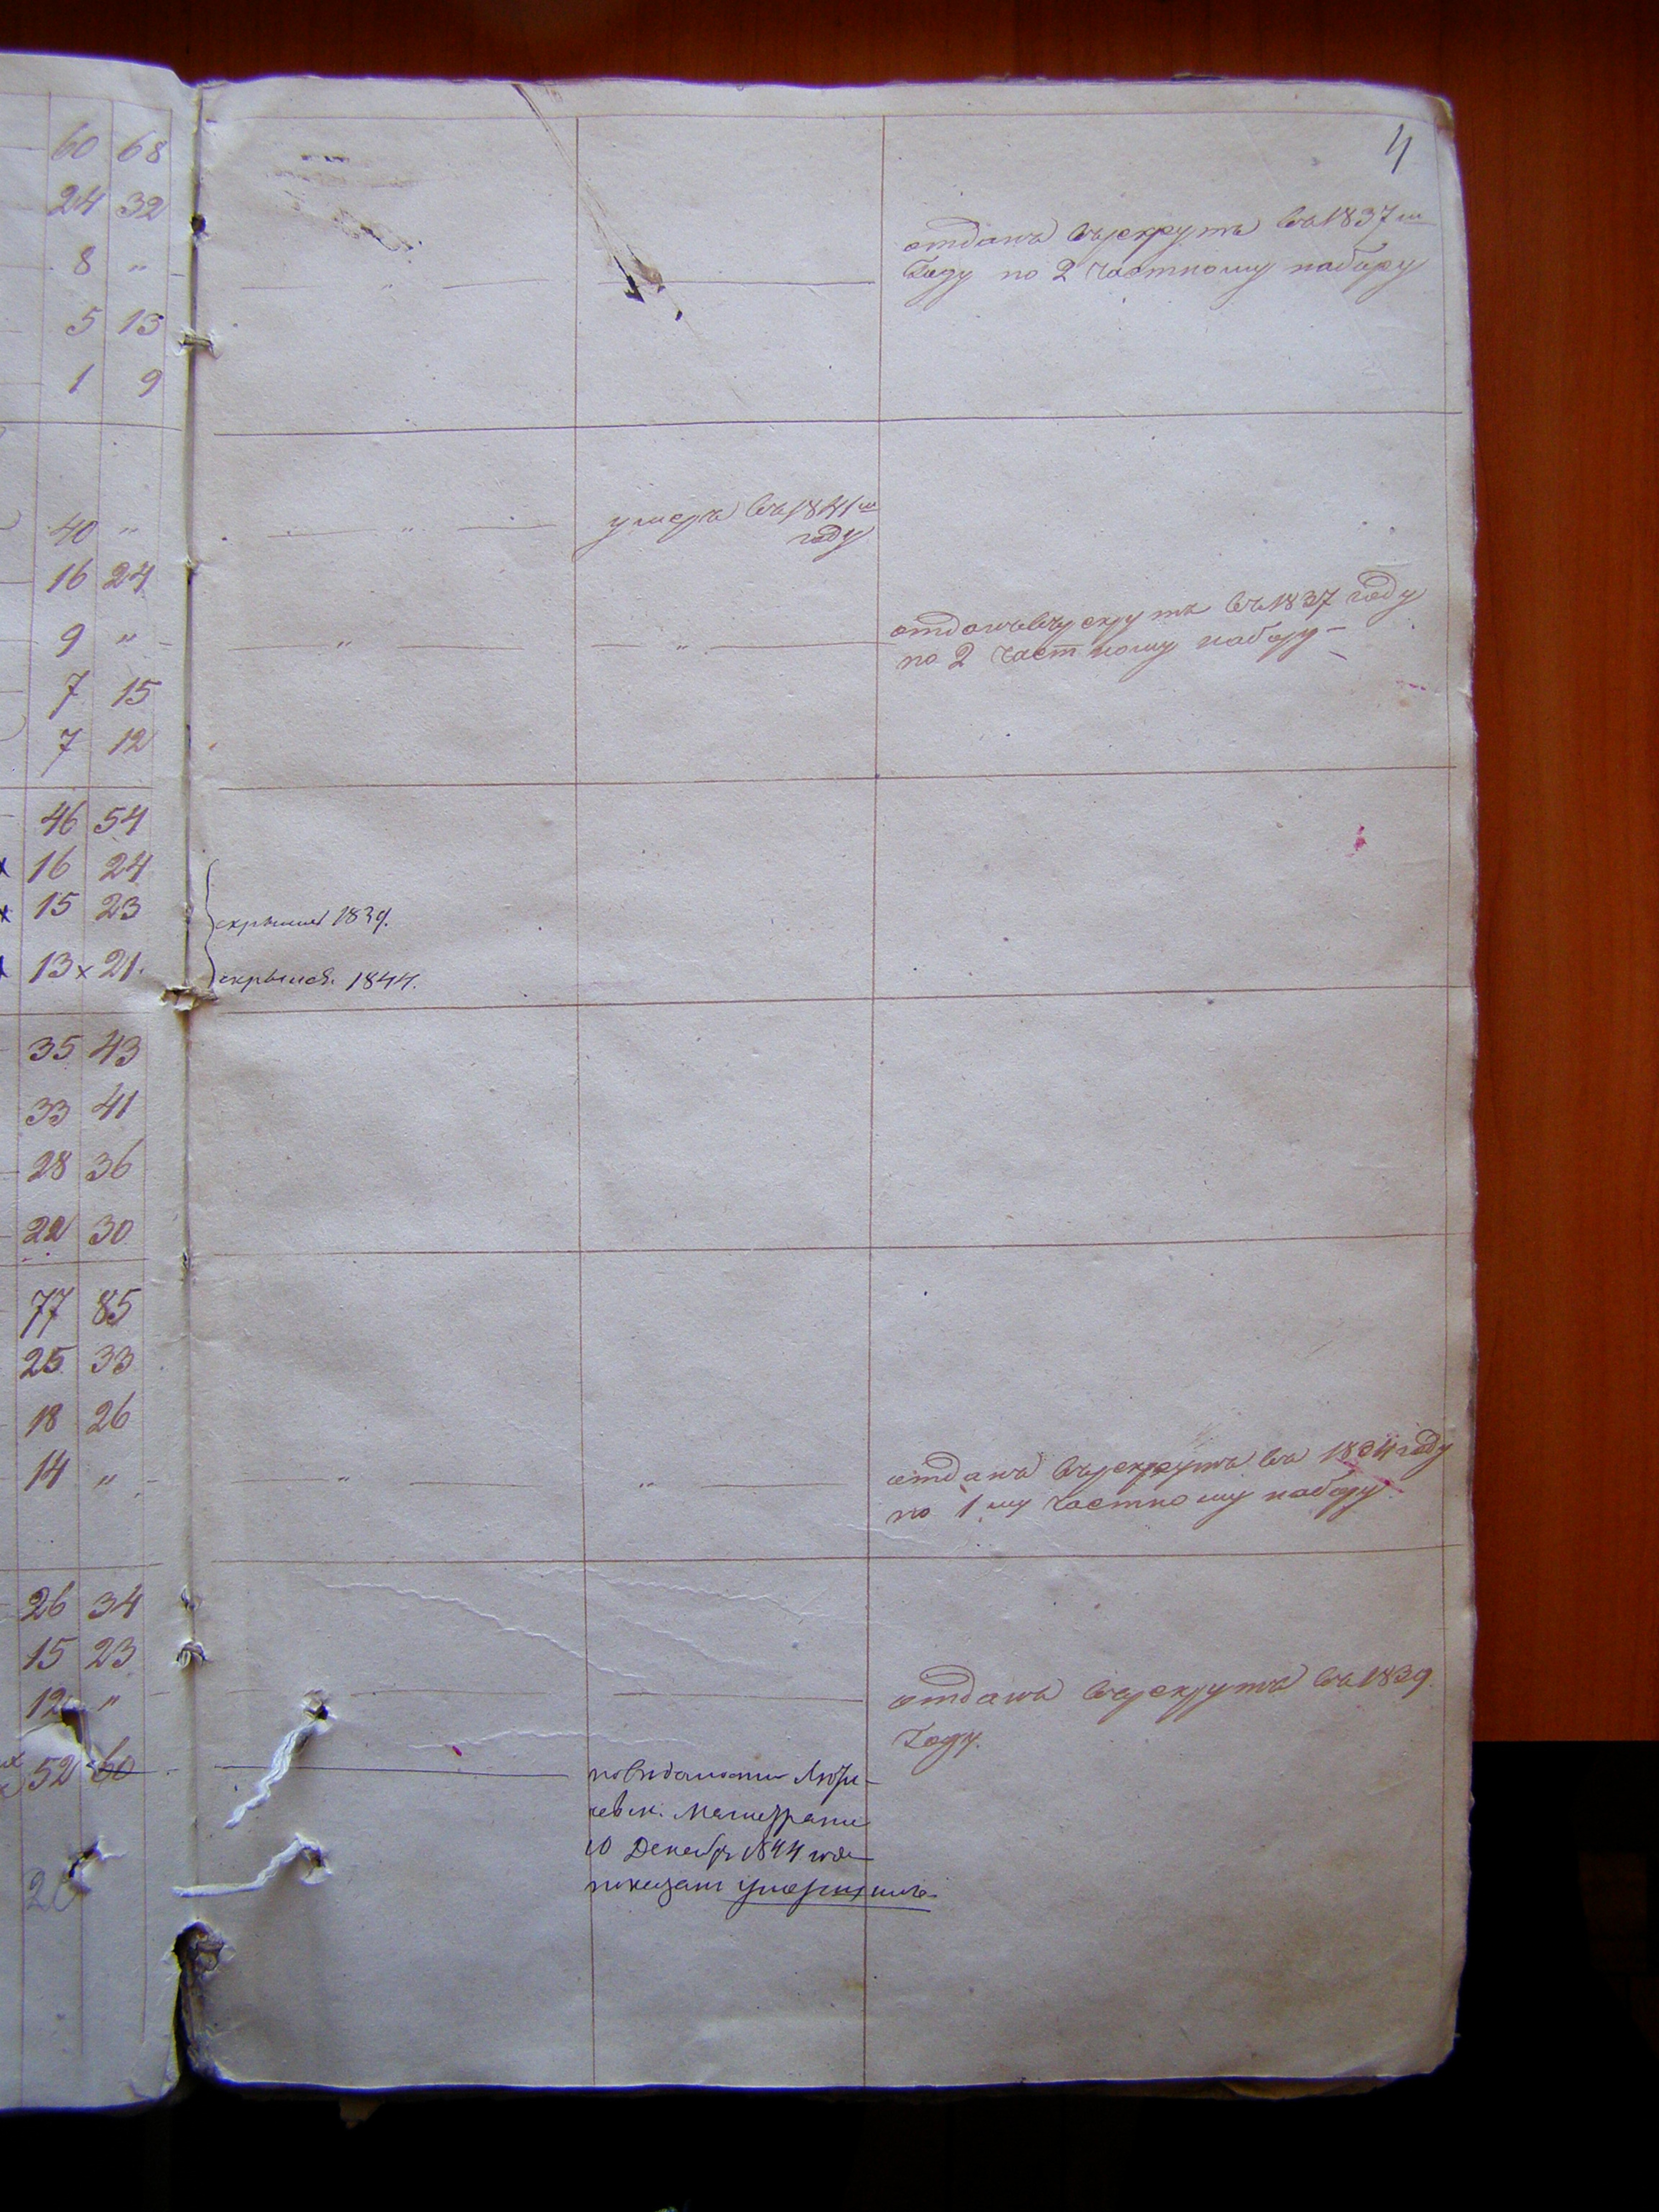 4
60 68
24 32
8 "
5 13
1 9
отданъ врекрутъ въ 1837 м
Году по 2 частному набору
40 "
16 24
9 "
7 15
7 12
умеръ въ 1841 м
году
отданъ врекрутъ въ 1837 году
по 2 частному набору
46 54
16 24
15 23
13 x 21
скрылись 1839.
скрылся 1844.
35 43
33 41
28 36
22 30
77 85
25 33
18 26
14 "
отданъ врекрутъ въ 1834 году
по 1му частному набору
26 34
15 23
12 "
52 60
20
отданъ врекрутъ въ 1839
Году.
Магистрата
10 Декабря 1844 года
показанъ умершимъ